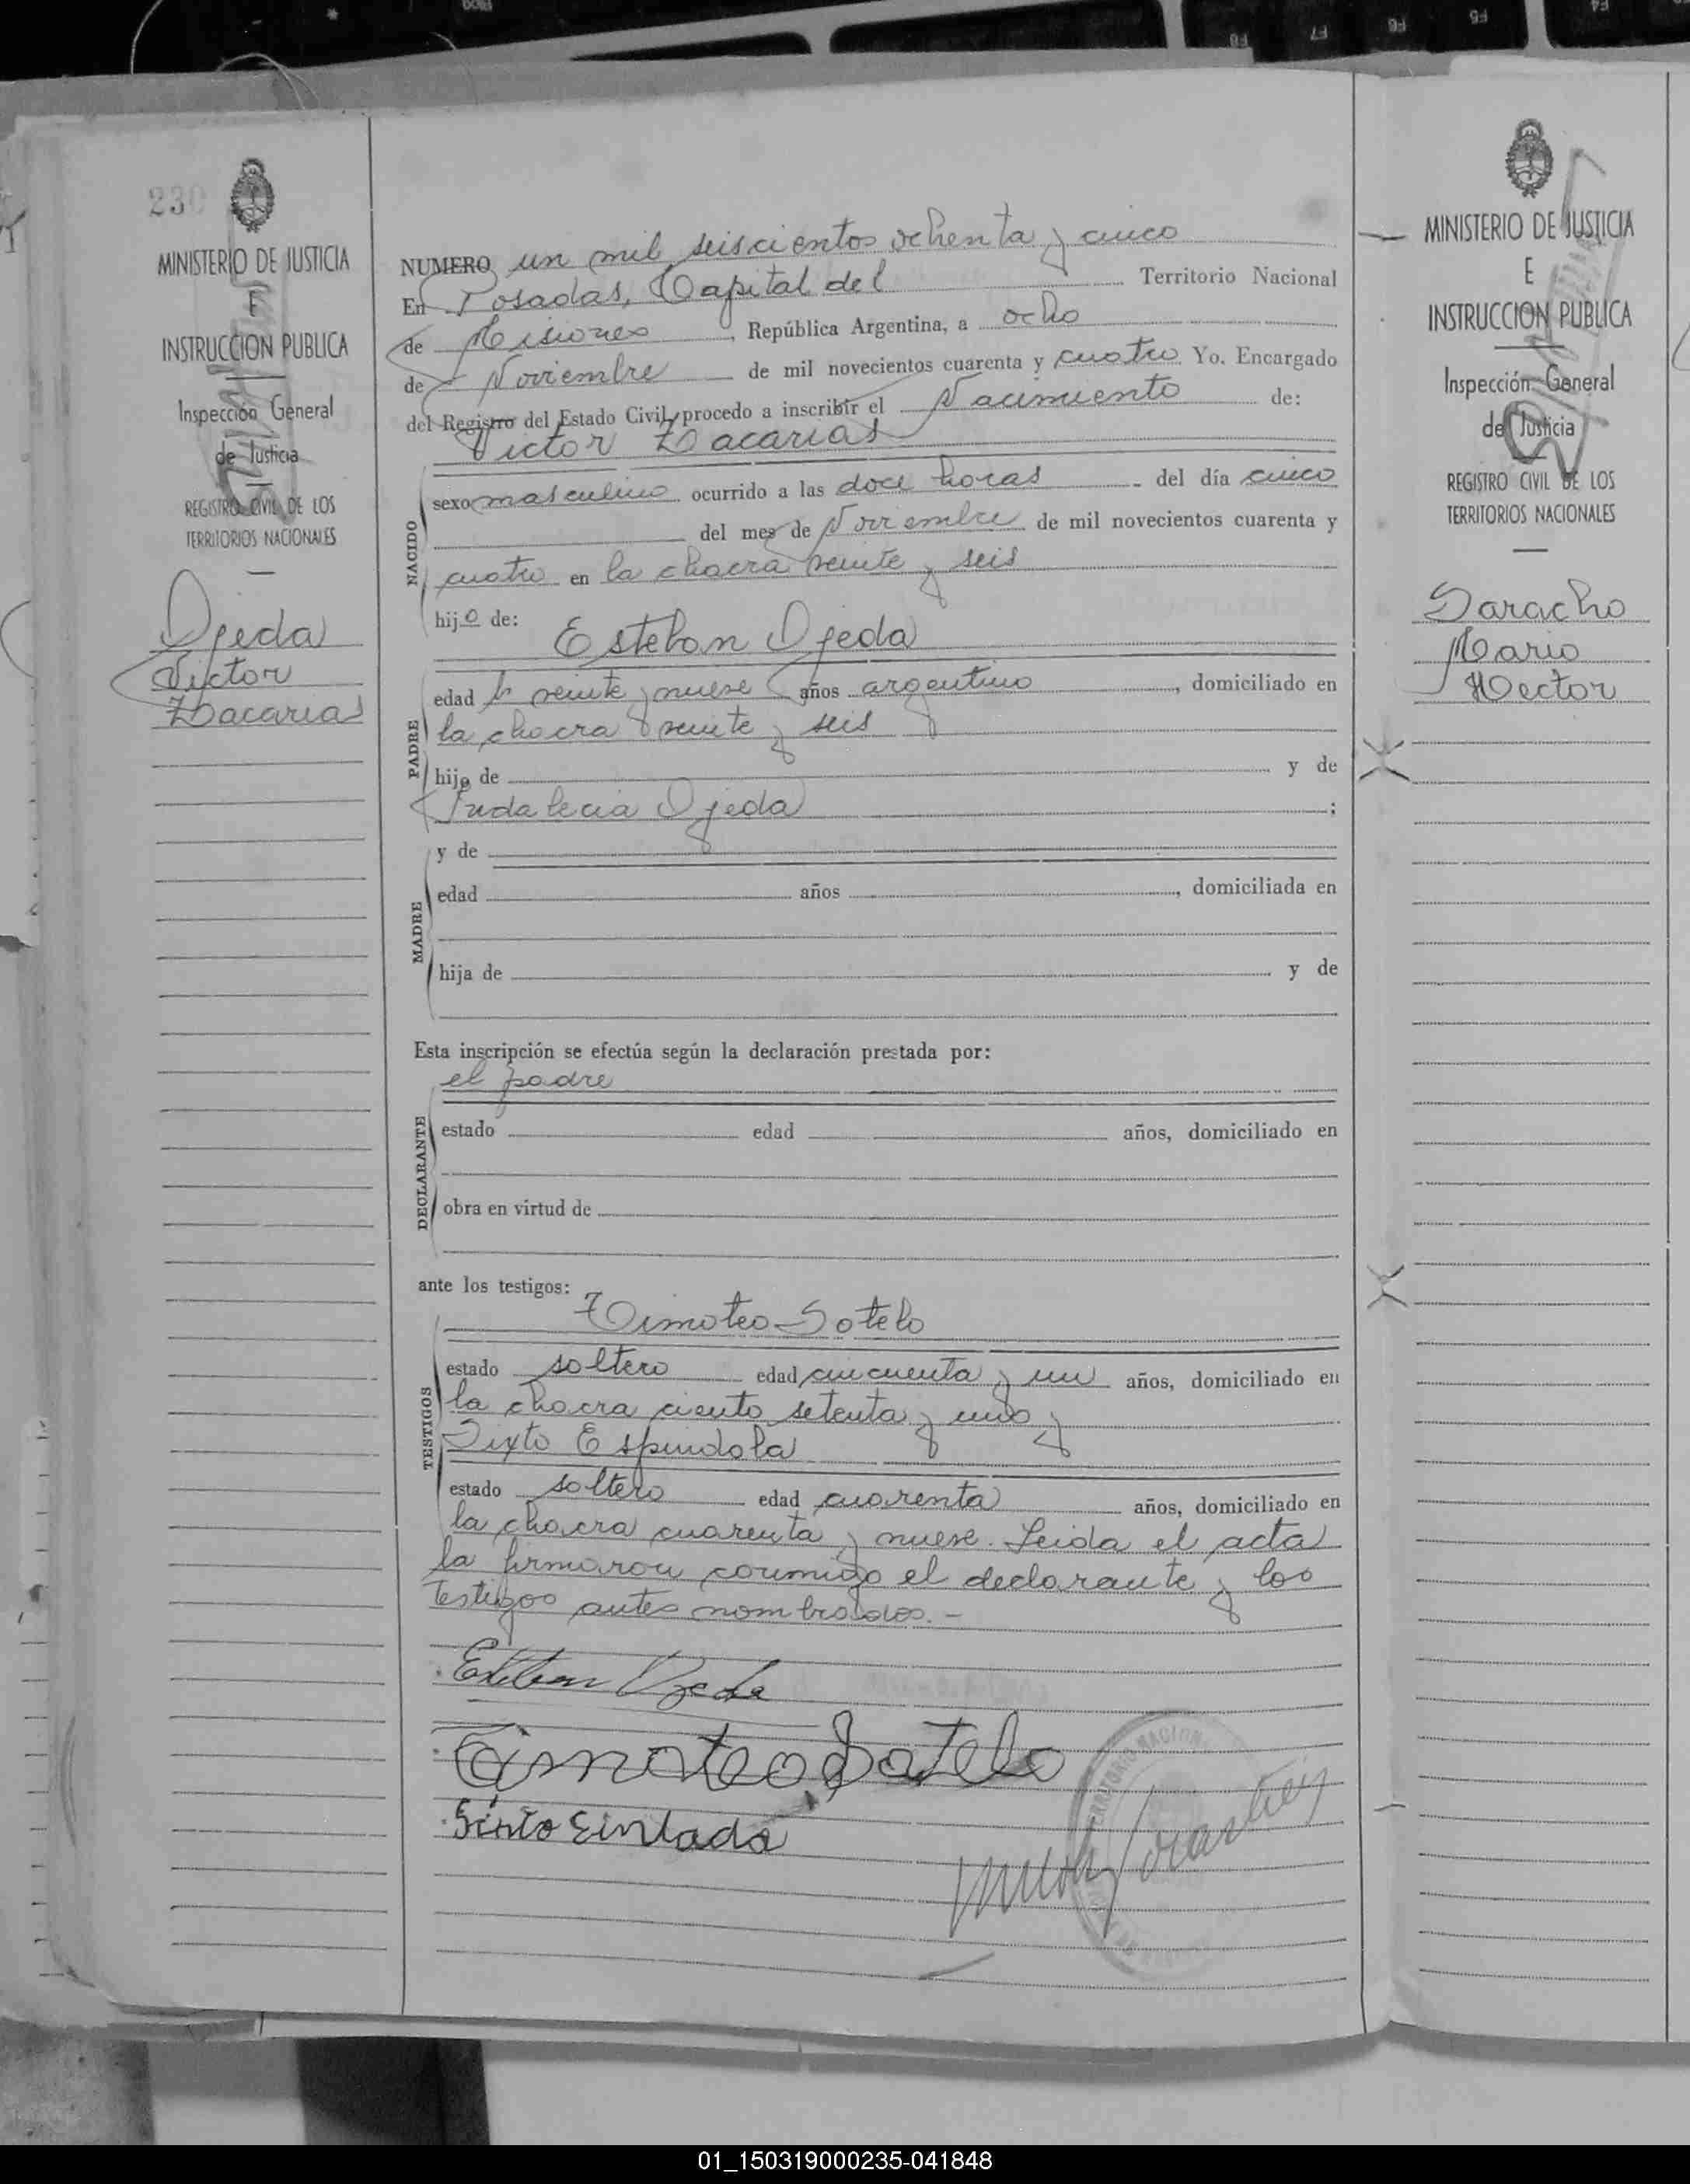 230
MINISTERIO DE JUSTICIA
E
INSTRUCCION PUBLICA
Inspección General
de Justicia
REGISTRO CIVIL DE LOS
TERRITORIOS NACIONALES
Ojeda
Victor
Zacarias
NUMERO un mil seiscientos ochenta y cinco
En Posadas, Capital del Territorio Nacional
de Misiones, República Argentina, a ocho
de Noviembre de mil novecientos cuarenta y cuatro Yo. Encargado
del Registro del Estado Civil, procedo a inscribir el Nacimiento de:
Victor Zacarias
NACIDO
sexo masculino ocurrido a las doce horas del día cinco
del mes de Noviembre de mil novecientos cuarenta y
cuatro en la chacra veinte y seis
hijo de:
Esteban Ojeda
PADRE
edad veinte y nueve años argentino, domiciliado en
la chacra veinte y seis
hijo de y de
Indalecia Ojeda;
MADRE
y de
edad años, domiciliada en
hija de y de
Esta inscripción se efectúa según la declaración prestada por:
el padre
DECLARANTE
estado edad años, domiciliado en
obra en virtud de
ante los testigos:
Timoteo Sotelo
TESTIGOS
estado soltero edad cincuenta y un años, domiciliado en
la chacra ciento setenta y uno y
Sixto Espindola
estado soltero edad cuarenta años, domiciliado en
la chacra cuarenta y nueve. Leida el acta
la firmaron conmigo el declarante y los
testigos antes nombrados.-
Esteban Ojeda
Timoteo Sotelo
TERRITORIO NACIONAL
MINISTERIO DE JUSTICIA
E
INSTRUCCION PUBLICA
Inspección General
de Justicia
REGISTRO CIVIL DE LOS
TERRITORIOS NACIONALES
Daracho
Mario
Hector
01_150319000235-041848